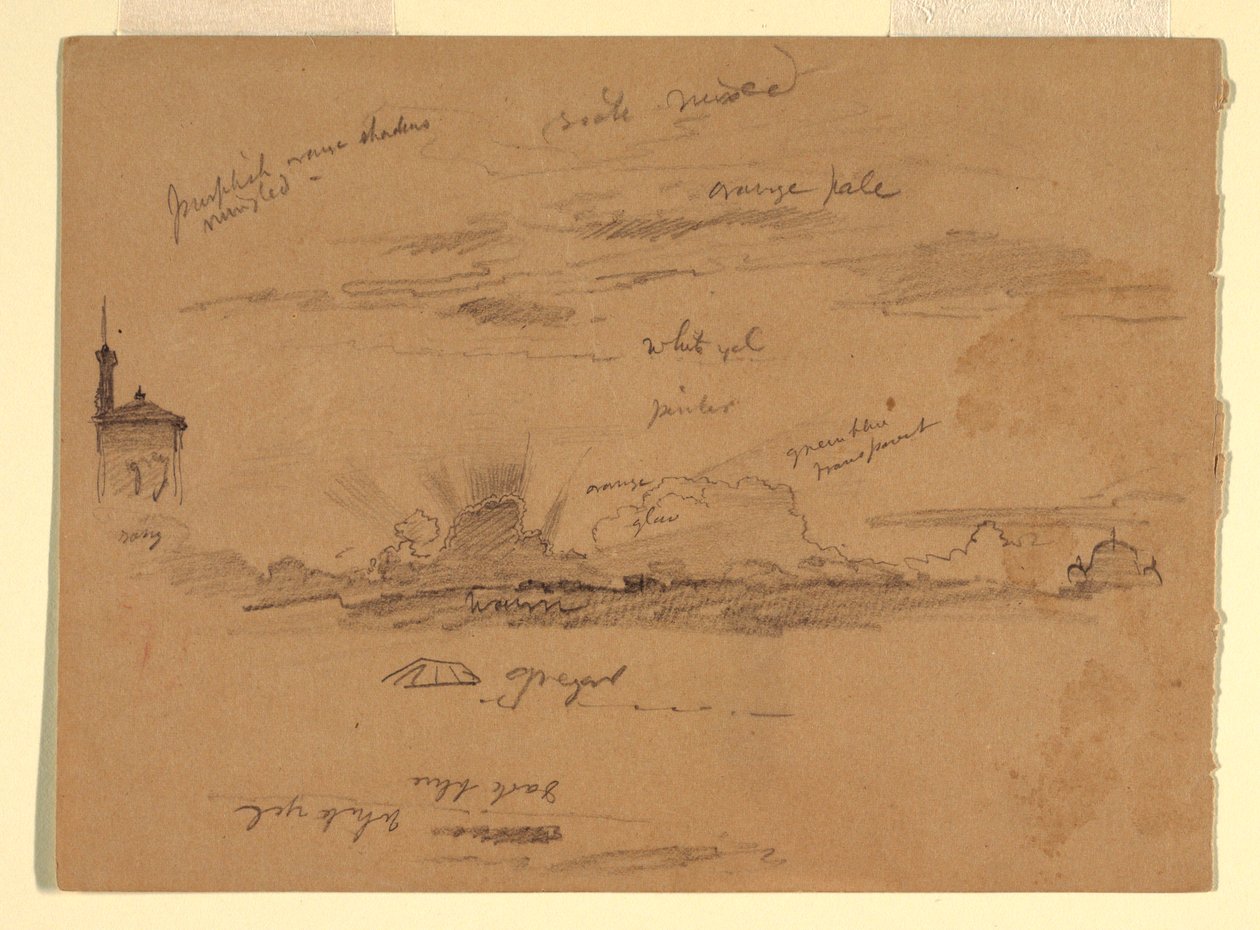 mixed
purplish orange shadows
mingled
orange pale
white yel
green blue
transparent
orange
glow
grey
warm
dark blue
white yel